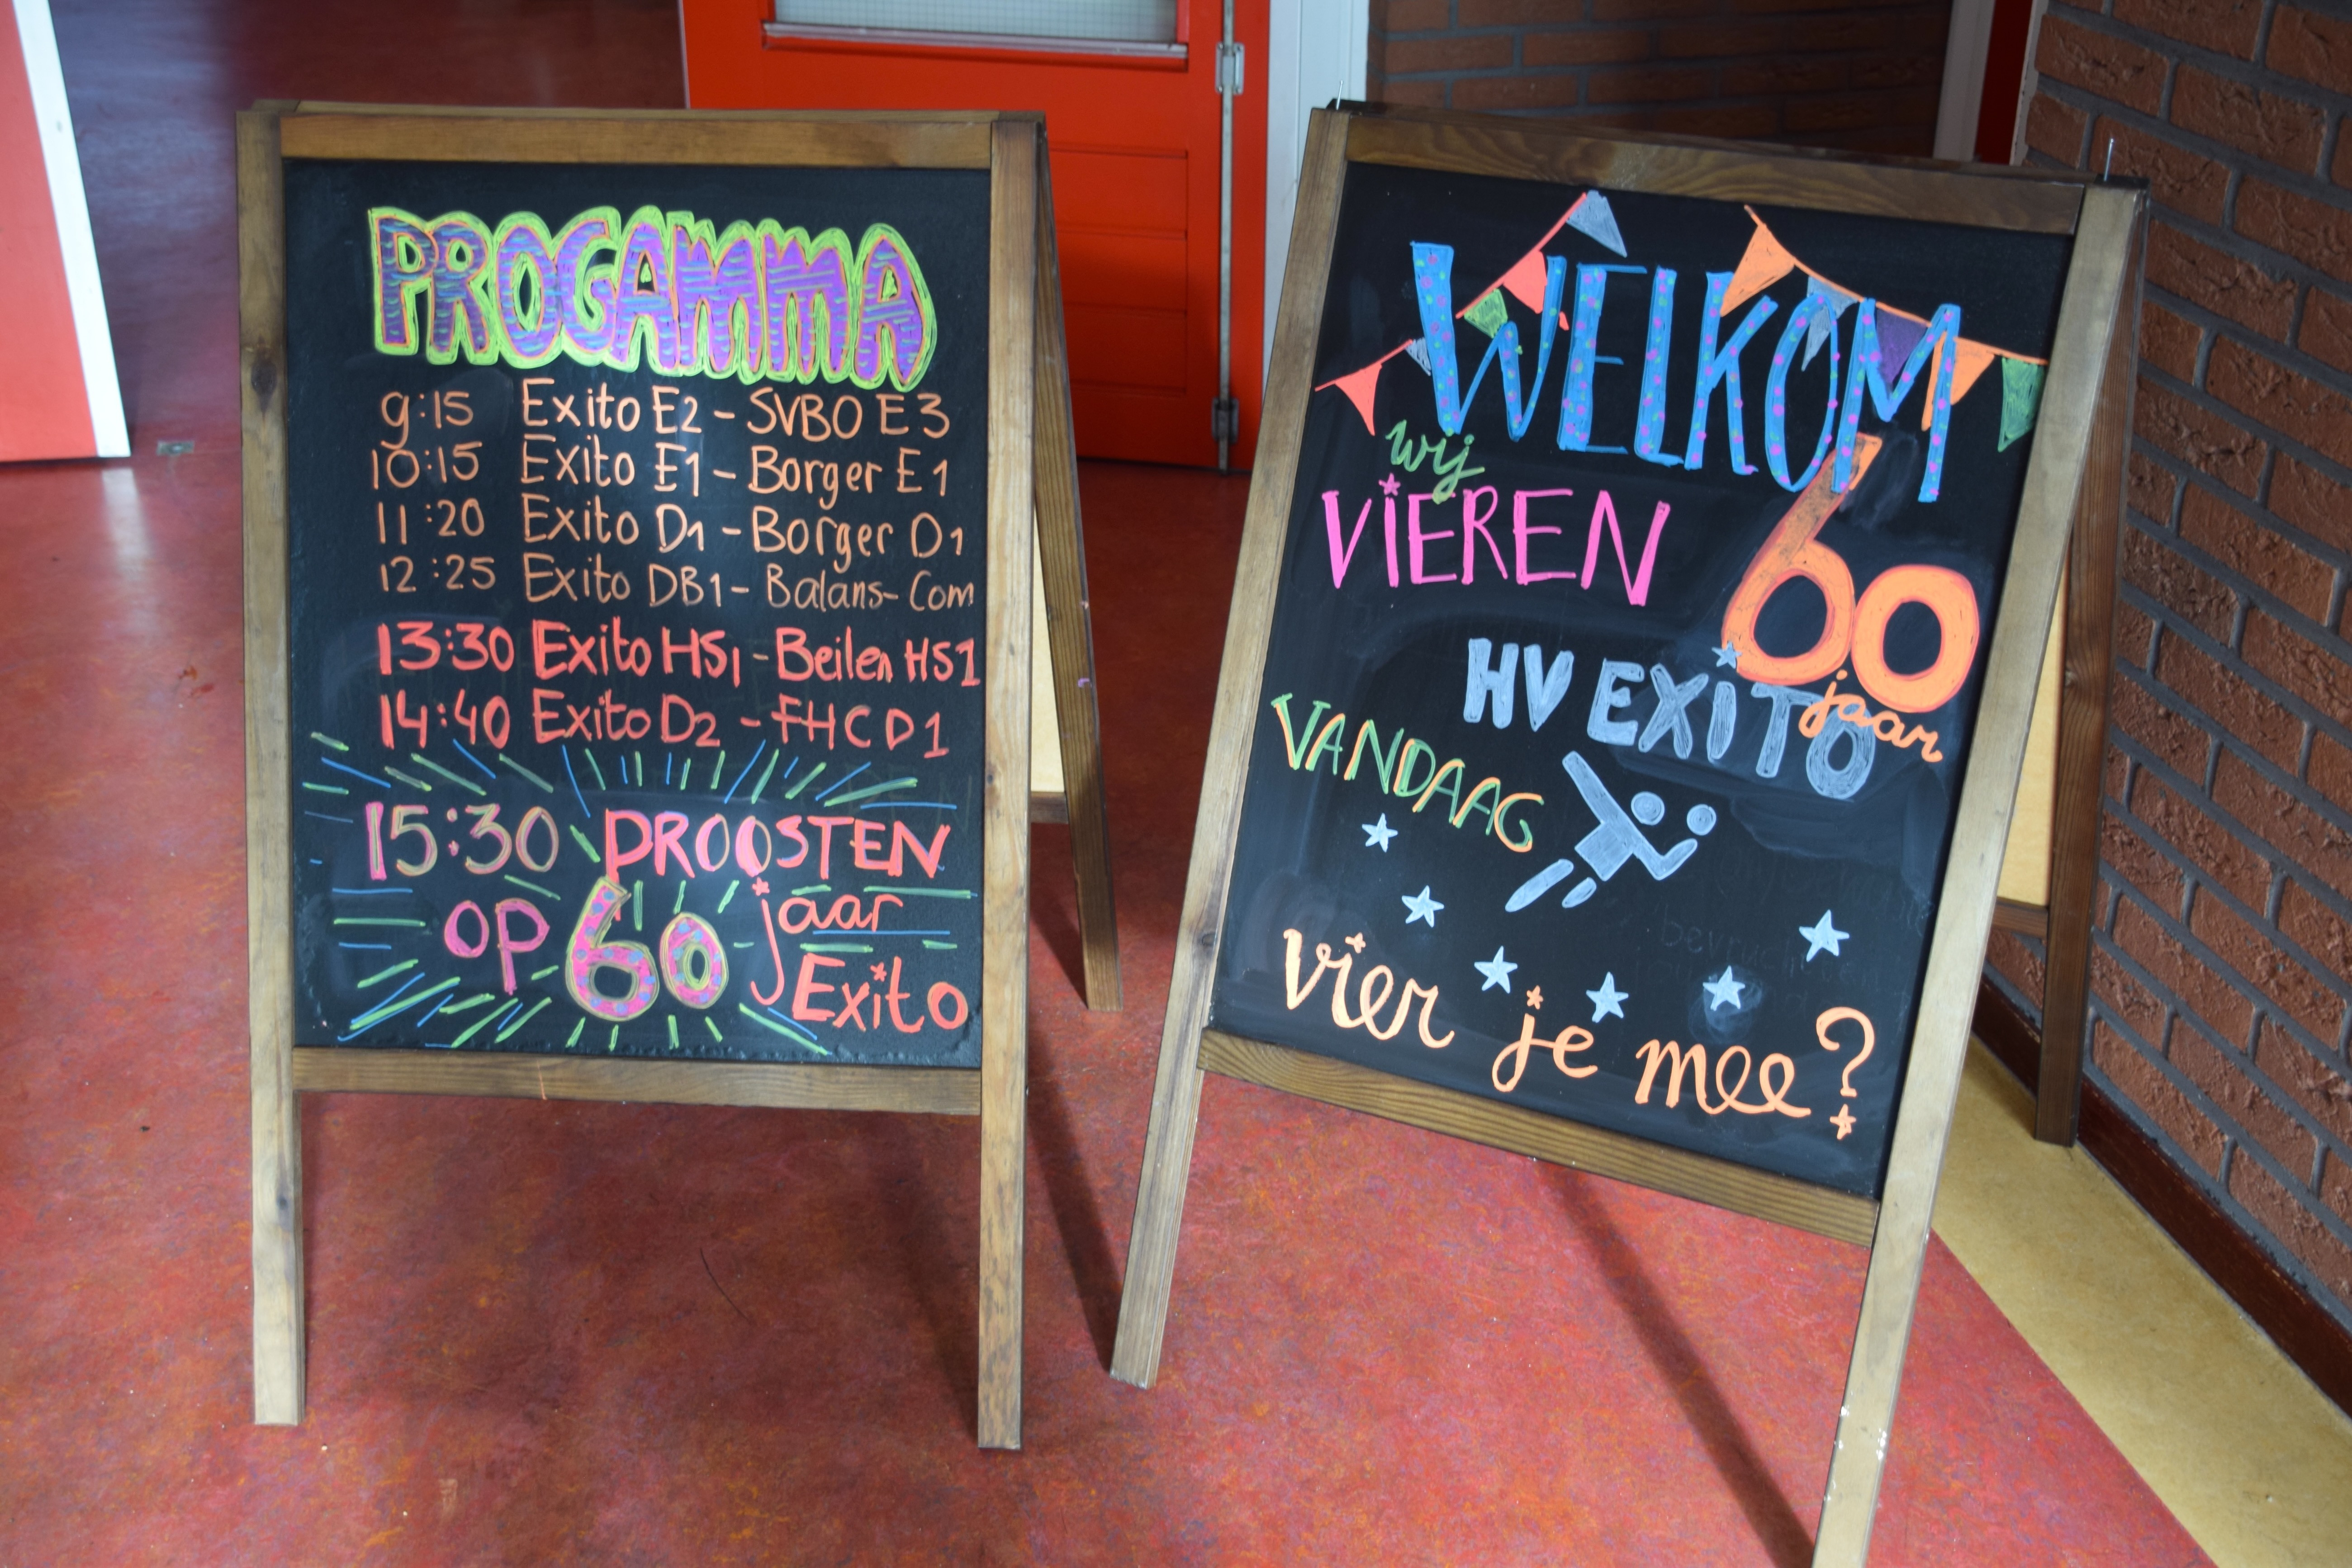 PROGAMMA
9:15 Exito E2 - SVBO E3
10:15 Exito E1 - Borger E1
11:20 Exito D1 - Borger D1
12:25 Exito DB1 - Balans-Com
13:30 Exito HS1 - Beilen HS1
14:40 Exito D2 - FHC D1
15:30 PROOSTEN
OP 60 jaar
Exito
WELKOM
wij
VIEREN 60
jaar
HV EXITO
VANDAAG
vier je mee?